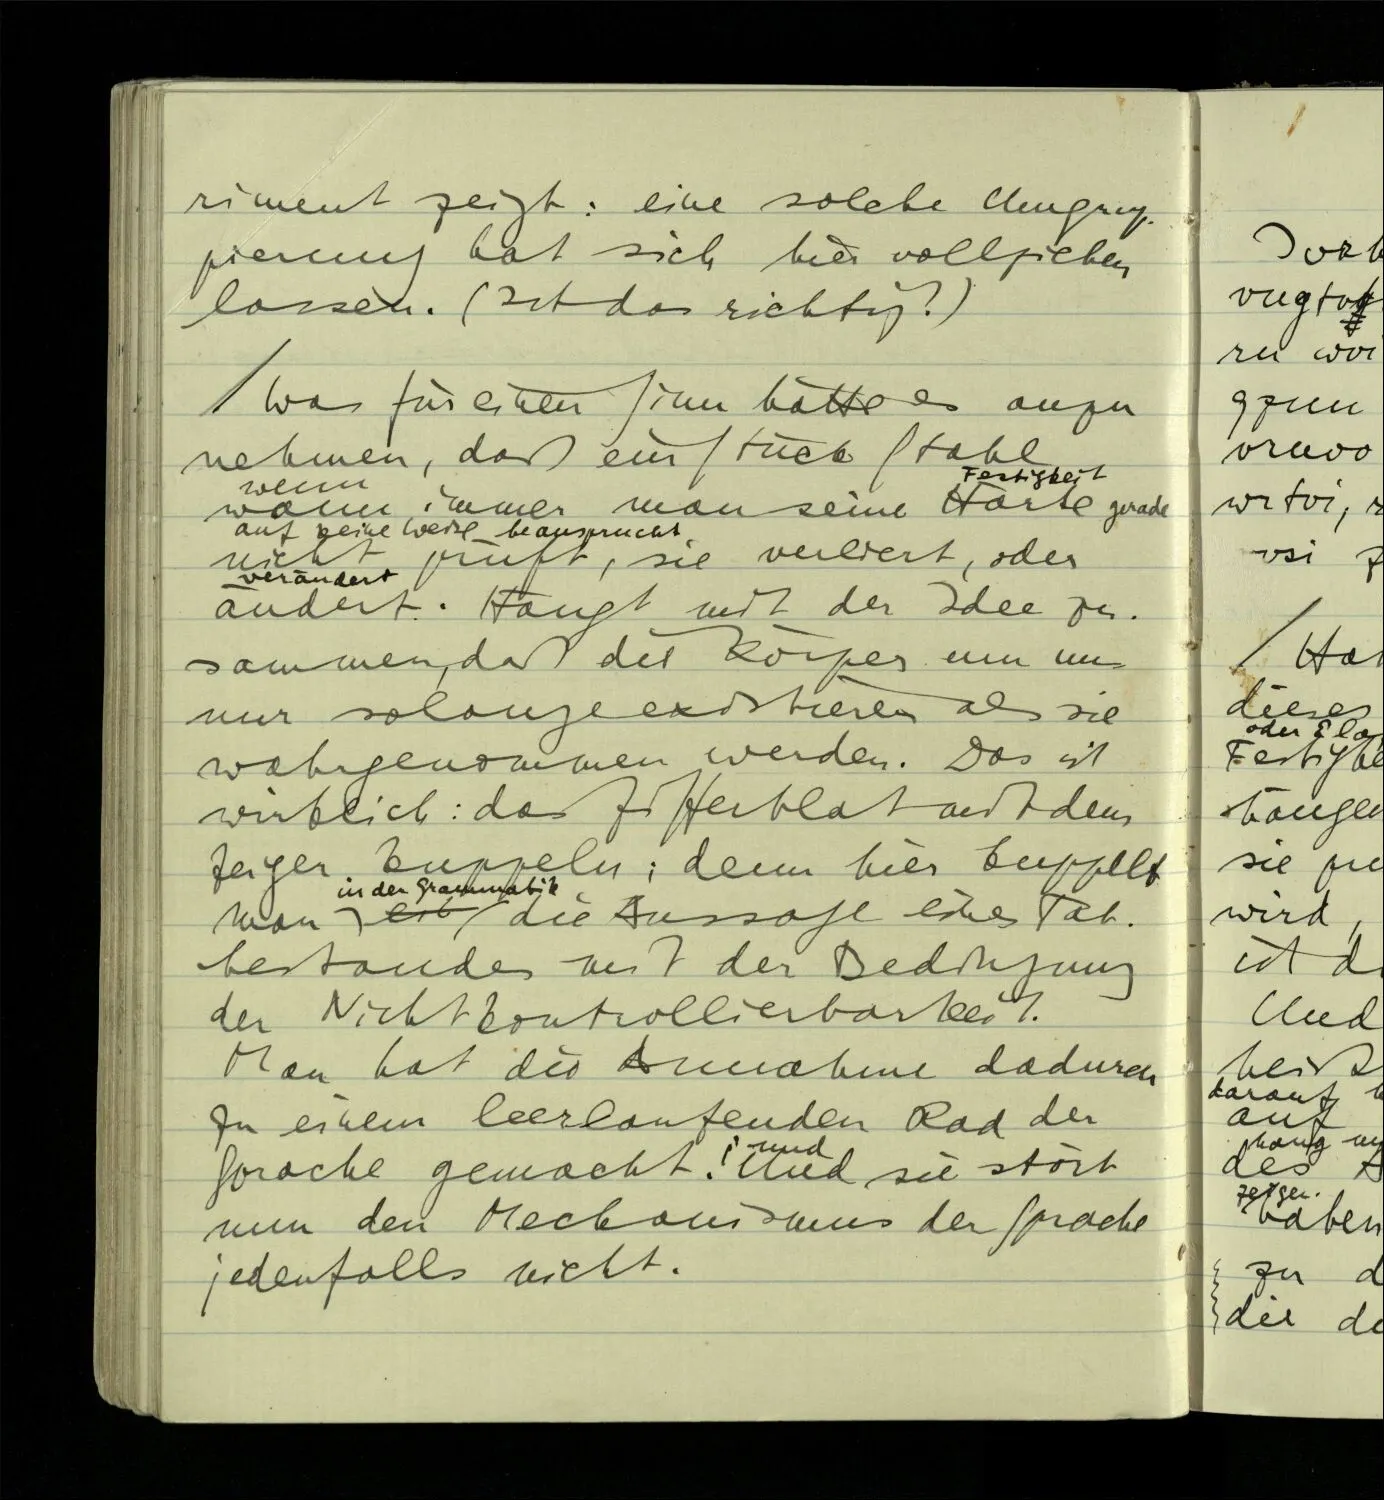 riment zeigt: eine solche Umgrup-
pierung hat sich hier vollziehen
lassen. (Ist das richtig?)
/ Was für einen Sinn hätte es anzu
nehmen, daß ein Stück Stahl
wenn Festigkeit
wann immer man seine Härte gerade
auf keine Weise beansprucht
nicht prüft, sie verliert, oder
verändert
ändert. Hängt mit der Idee zu-
sammen, daß die Körper um uns
nur solange existieren als sie
wahrgenommen werden. Das ist
wirklich: das Zifferblatt mit dem
Zeiger kuppeln; denn hier kuppelt
in der Grammatik
man die Aussage eines Tat-
bestandes mit der Bedingung
der Nichtkontrollierbarkeit.
Man hat die Annahme dadurch
zu einem leerlaufenden Rad der
; und
Sprache gemacht. Und sie stört
nun den Mechanismus der Sprache
jedenfalls nicht.
vngtv
rn wvi
gznn
vrnvo
wrtvi,
vsi
/
dieses
oder Ela
Festigke
hängen
sie
wird,
ist d
Und
heißt
darauf
auf
hang
des
zeigen.
haben
zu d
die de